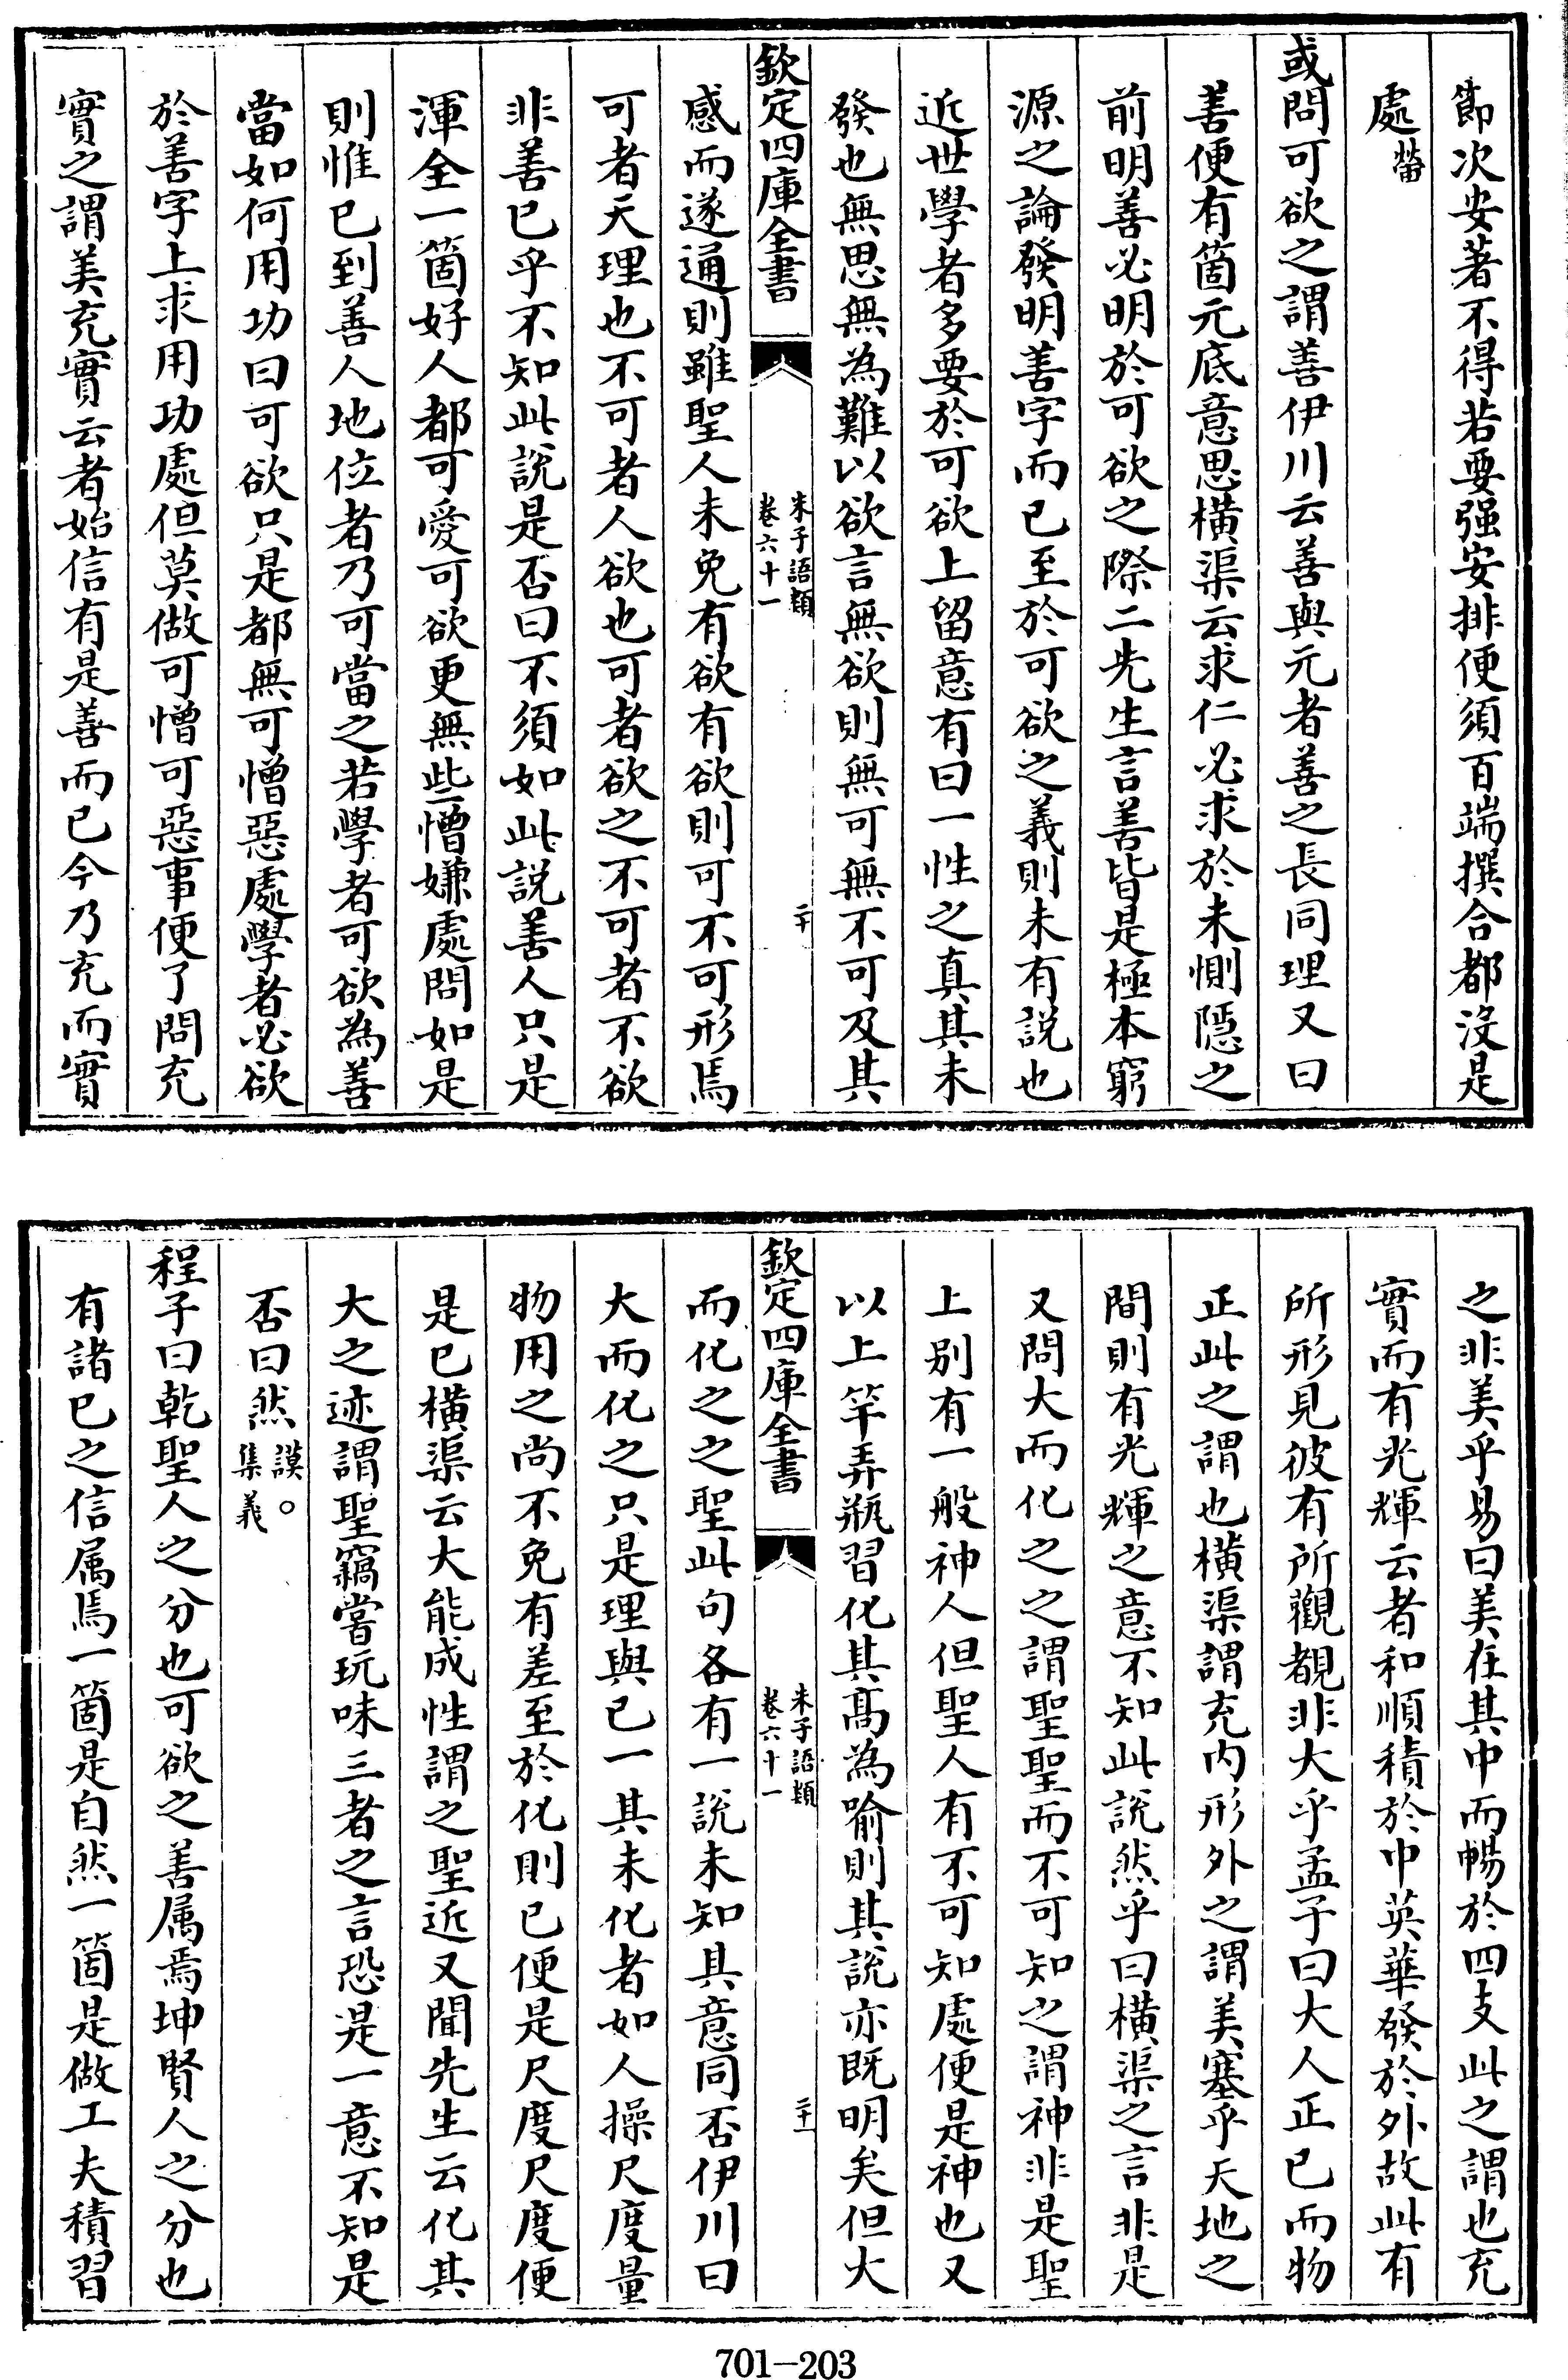 節次安著不得若要强安排便須百端撰合都沒是
處㽦
或問可欲之謂善伊川云善與元者善之長同理又曰
善便有箇元底意思橫渠云求仁必求於未惻隠之
前明善必明於可欲之際二先生言善皆是極本窮
源之論發明善字而已至於可欲之義則未有説也
近世學者多要於可欲上留意有曰一性之真其未
發也無思無為難以欲言無欲則無可無不可及其
欽定四庫全書
朱子語類
卷六十一
二十
感而遂通則雖聖人未免有欲有欲則可不可形焉
可者天理也不可者人欲也可者欲之不可者不欲
非善已乎不知此説是否曰不須如此説善人只是
渾全一箇好人都可愛可欲更無些憎嫌處問如是
則惟已到善人地位者乃可當之若學者可欲為善
當如何用功曰可欲只是都無可憎惡處學者必欲
於善字上求用功處但莫做可憎可惡事便了問充
實之謂美充實云者始信有是善而已今乃充而實
之非美乎易曰美在其中而暢於四支此之謂也充
實而有光輝云者和順積於中英華發於外故此有
所形見彼有所觀覩非大乎孟子曰大人正已而物
正此之謂也橫渠謂充内形外之謂美塞乎天地之
間則有光輝之意不知此説然乎曰橫渠之言非是
又問大而化之之謂聖聖而不可知之謂神非是聖
上别有一般神人但聖人有不可知處便是神也又
以上竿弄瓶習化其髙為喻則其説亦既明矣但大
欽定四庫全書
朱子語類
卷六十一
二十一
而化之之聖此句各有一説未知其意同否伊川曰
大而化之只是理與已一其未化者如人操尺度量
物用之尚不免有差至於化則已便是尺度尺度便
是已橫渠云大能成性謂之聖近又聞先生云化其
大之迹謂聖竊嘗玩味三者之言恐是一意不知是
否曰然謨○集義
程子曰乾聖人之分也可欲之善属焉坤賢人之分也
有諸已之信属焉一箇是自然一箇是做工夫積習
701-203